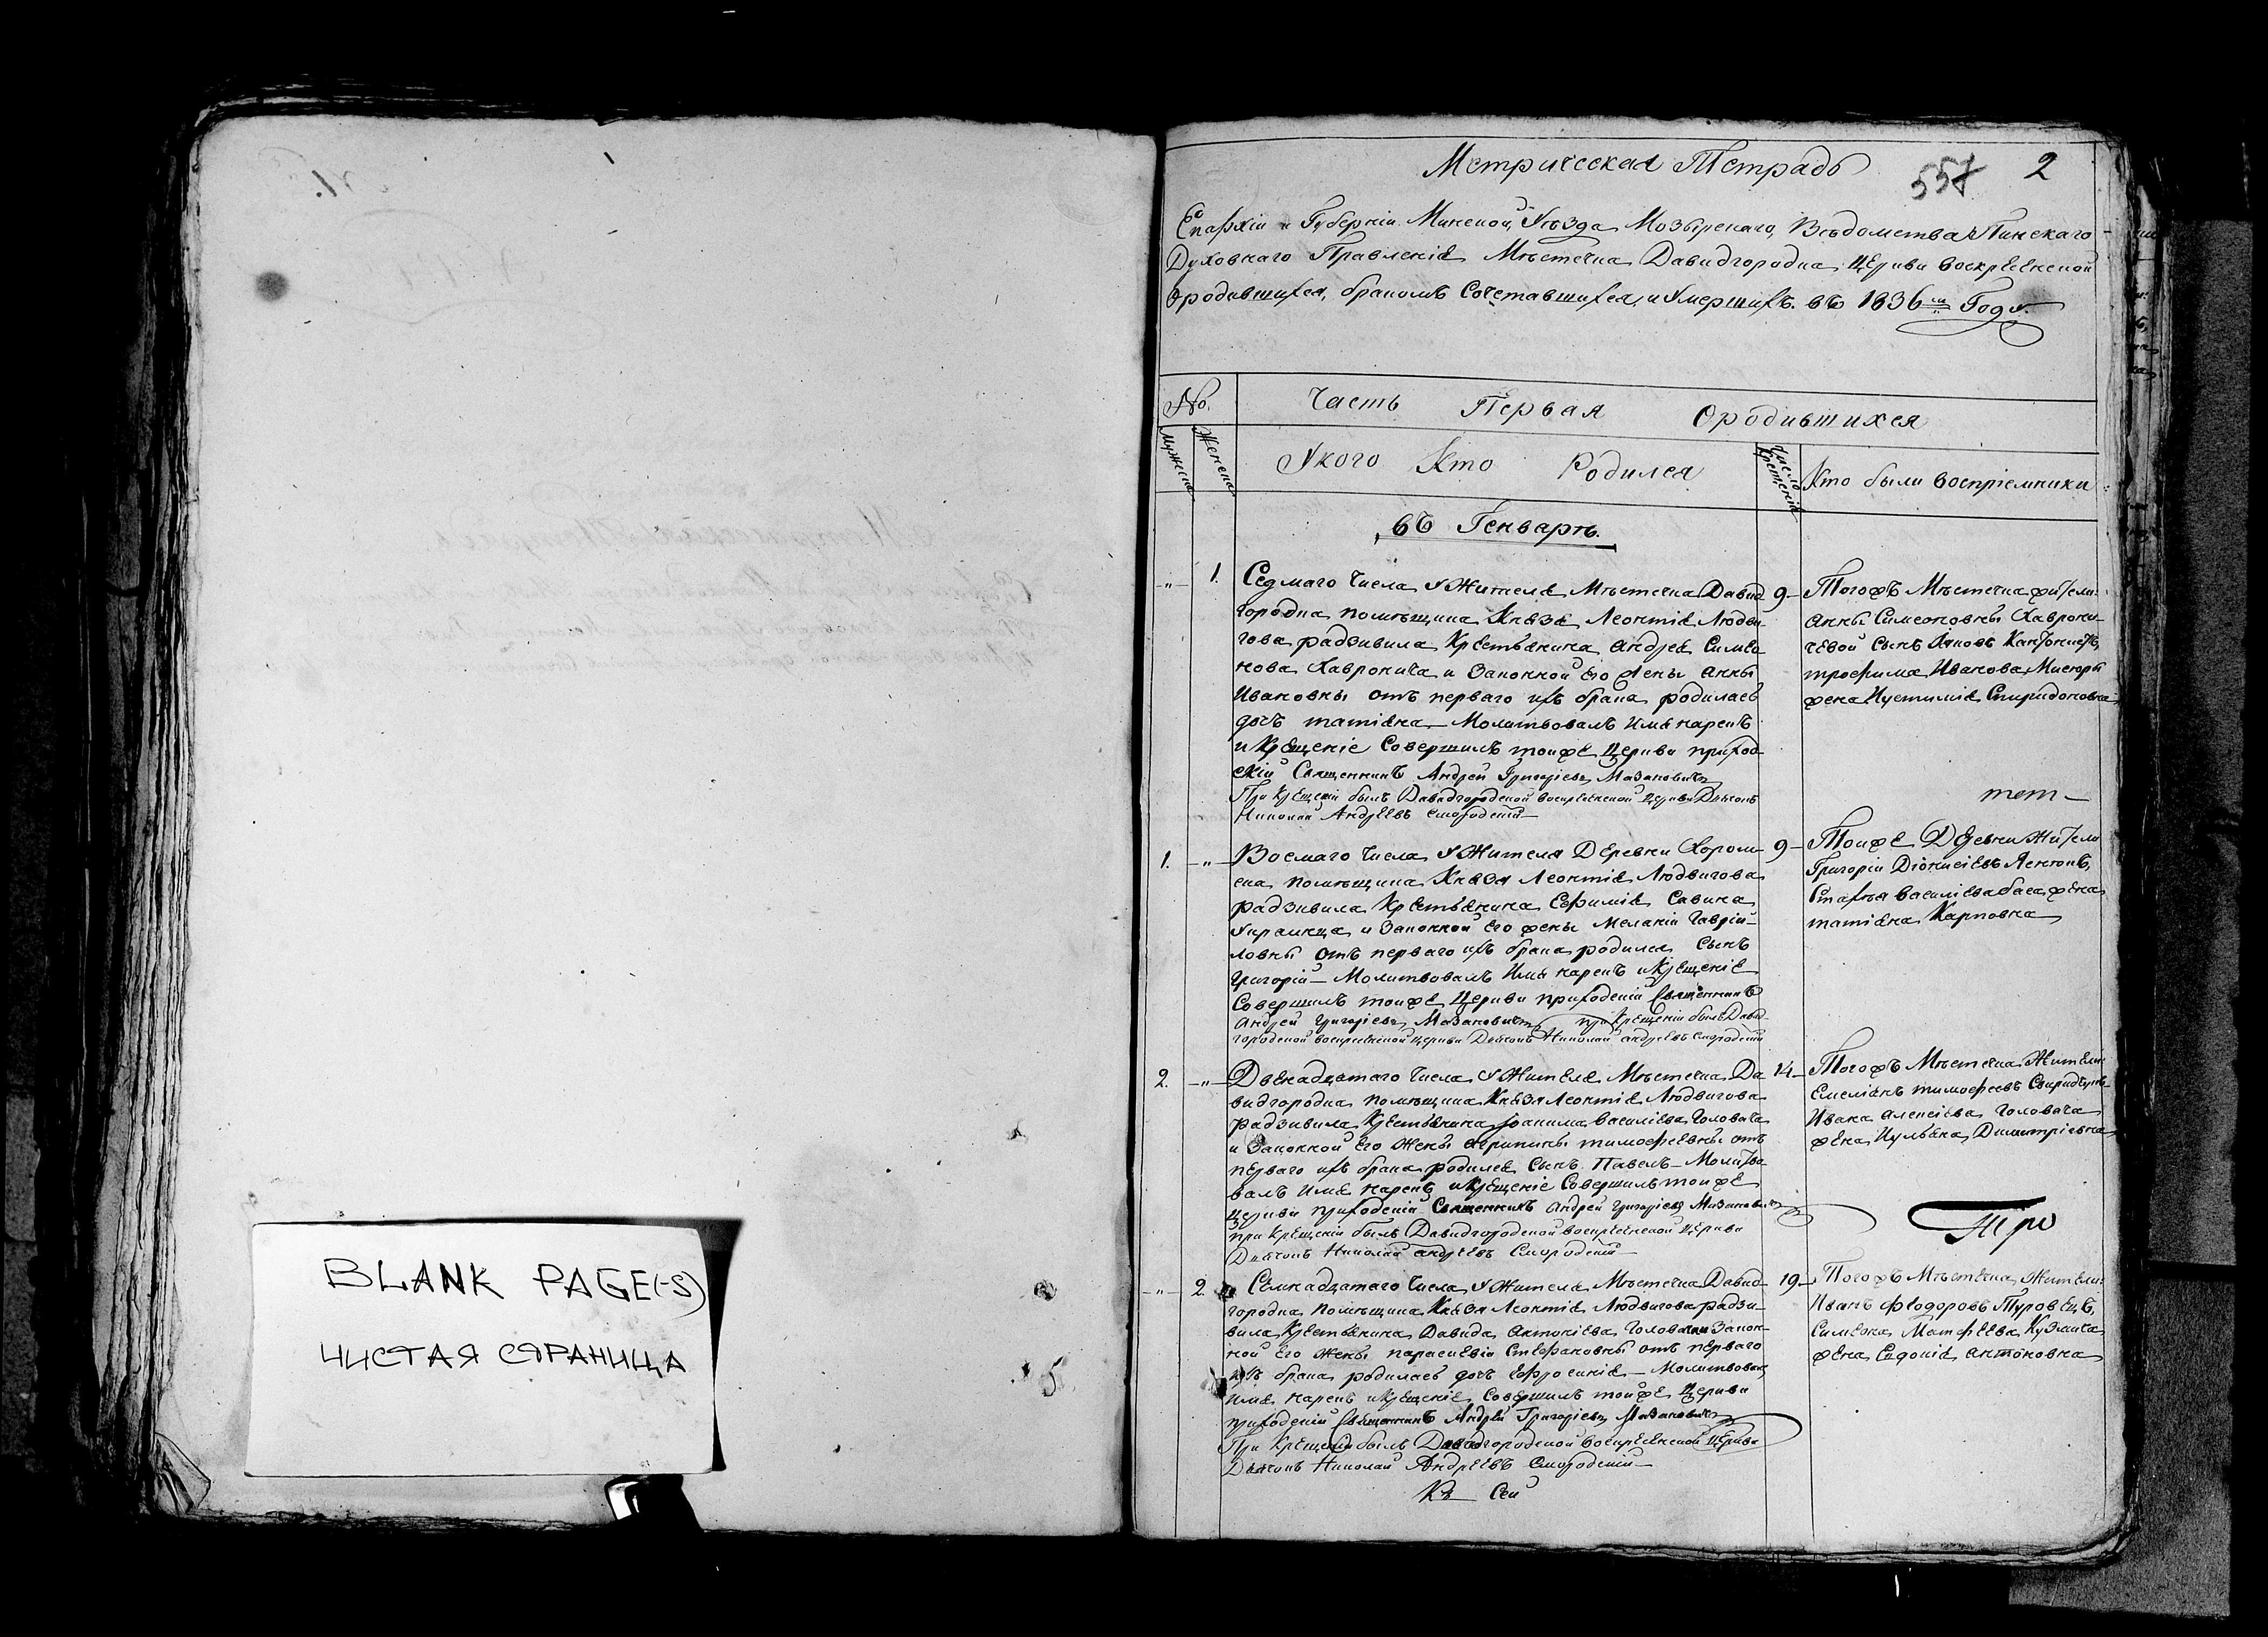 BLANK PAGE(-S)
ЧИСТАЯ СТРАНИЦА
Метрическая Тетрадь
557 2
Епархіи и Губерніи Минской, Уѣзда Мозырскаго, Вѣдомства Пинскаго
Духовнаго Правленія Мѣстечка Давидгородка Церкви Воскресенской
Ородившихся, бракомъ Сочетавшихся, и Умершихъ. въ 1836м Году.
No. Часть Первая Ородившихся
Мужеска Женска Укого Кто Родился Число крещенія Кто были воспріемники
въ Генварѣ.
„ 1. Седмаго Числа УЖителя Мѣстечка Давид
городка помѣщика Князя Леонтія Людви-
гова радзивила Крестьянина Андрея Симео
нова Хавронича и Законной его жены Анны
Ивановны отъ перваго ихъ брака родилась
дочь татіяна – Молитвовалъ Имя нарекъ
и Крещеніе Совершилъ тоиже Церкви приход
скій Священникъ Андрей Григоріевъ Мазановичъ
При Крещеніи былъ Давидгородской воскресенской Церкви Дьячокъ
Николай Андреевъ Смородскій –
9 – Тогожъ Мѣстечка жители:
Анны Симеоновны Хаврони-
чевой сынъ
трофима Иванова
жена Иустинія Спиридоновна
тет –
1. „ Восмаго Числа УЖителя Деревни Хором-
ска помѣщика Князя Леонтія Людвигова
радзивила Крестьянина Евфимія Савина
Украинца и Законной Его жены Меланіи Гавріи-
ловны отъ перваго ихъ брака родился Сынъ
Григорій – Молитвовалъ Имя нарекъ и Крещеніе
Совершилъ тоиже Церкви приходскій Священникъ
Андрей Григоріевъ Мазановичъ при Крещеніи былъ Давид-
городской воскресенской Церкви Дьячокъ Николай Андреевъ Смородскій
9 – Тоиже Деревни Жители
Григорій Діонисіевъ
Василіева баса жена
татіяна Карповна
2. „ Двенадцатаго Числа УЖителя Мѣстечка Да
видгородка помѣщика Князя Леонтія Людвигова
радзивила Крестьянина Іоакима Василіева Головача
и Законной Его Жены Агрипины тимофеевны отъ
перваго ихъ брака родился Сынъ Павелъ – Молитво
валъ Имя нарекъ и Крещеніе Совершилъ тоиже
Церкви приходскій Священникъ Андрей Григоріевъ Мазановичъ
при Крещеніи былъ Давидгородской воскресенской Церкви
Дьячокъ Николай Андреевъ Смородскій –
14 – Тогожъ Мѣстечка Жители:
Емеліянъ тимофеевъ
Ивана Алексіева Головача
жена Иульяна Димитріевна
Тро
„ 2 Семнадцатаго Числа УЖителя Мѣстечка Давид-
городка Помѣщика Князя Леонтія Людвигова радзи-
вила Крестьянина Давида Антоніева Головачи Закон-
ной Его Жены параскевіи Стефановны отъ перваго
ихъ брака родилась дочь Ефросинія – Молитвовалъ
Имя нарекъ и Крещеніе Совершилъ тоиже Церкви
приходскій Священникъ Андрей Григоріевъ Мазановичъ
При Крещеніи былъ Давидгородской воскресенской Церкви
Дьячокъ Николай Андреевъ Смородскій –
19 – Тогожъ Мѣстечка Жители:
Иванъ Феодоровъ Туровецъ,
Симеона Матфеева Кузмича
жена Евдокія Антоновна
Къ Сей